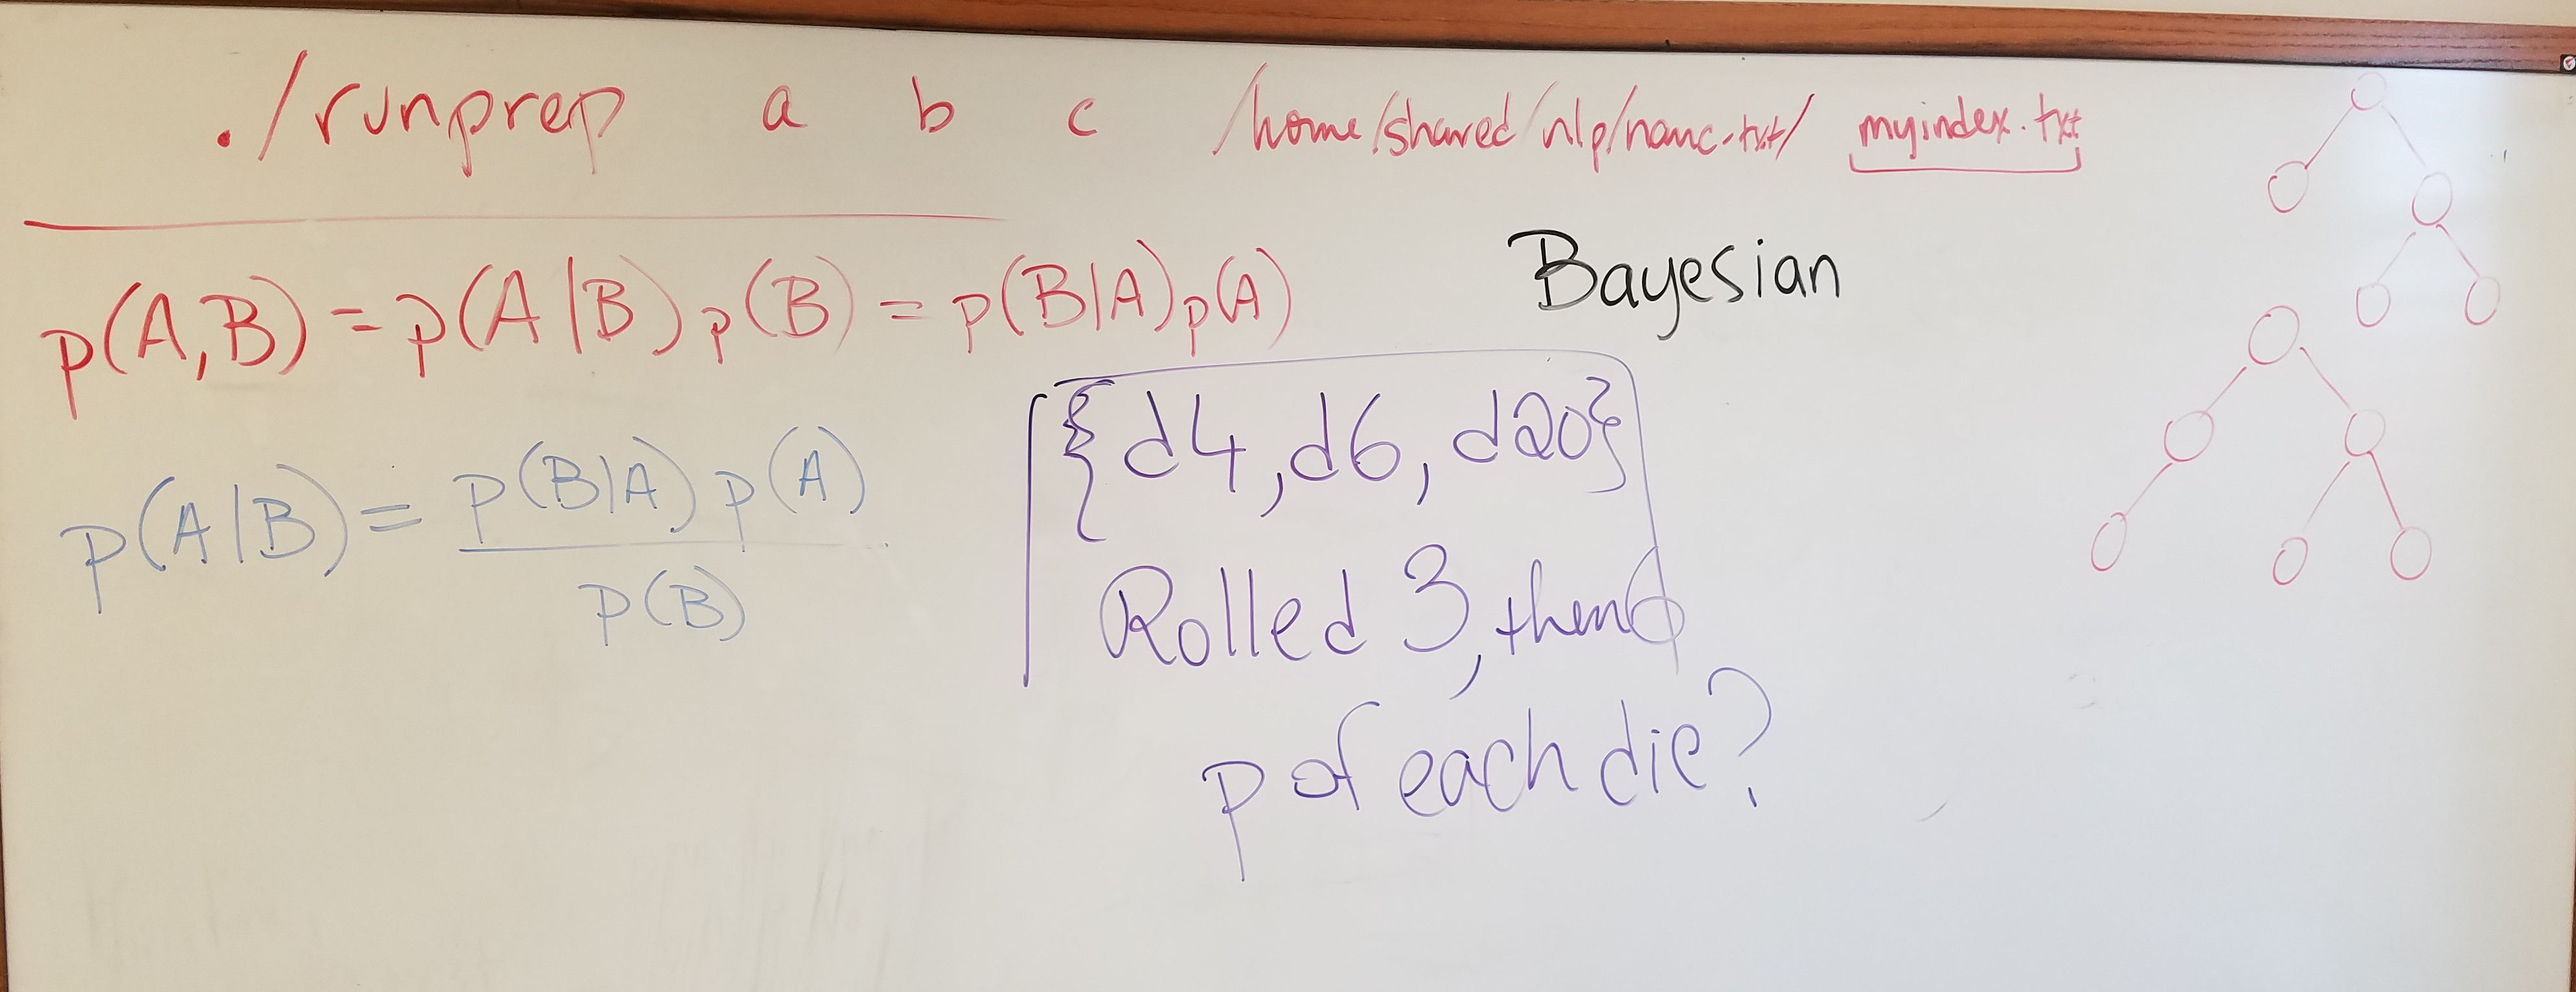 ./runprep a b c /home/shared/nlp/nanc.txt/ myindex.txt
p(A,B) = p(A|B) p(B) = p(B|A) p(A)
Bayesian
p(A|B) = p(B|A) p(A)
p(B)
{d4, d6, d20}
Rolled 3, then 6
p of each die?